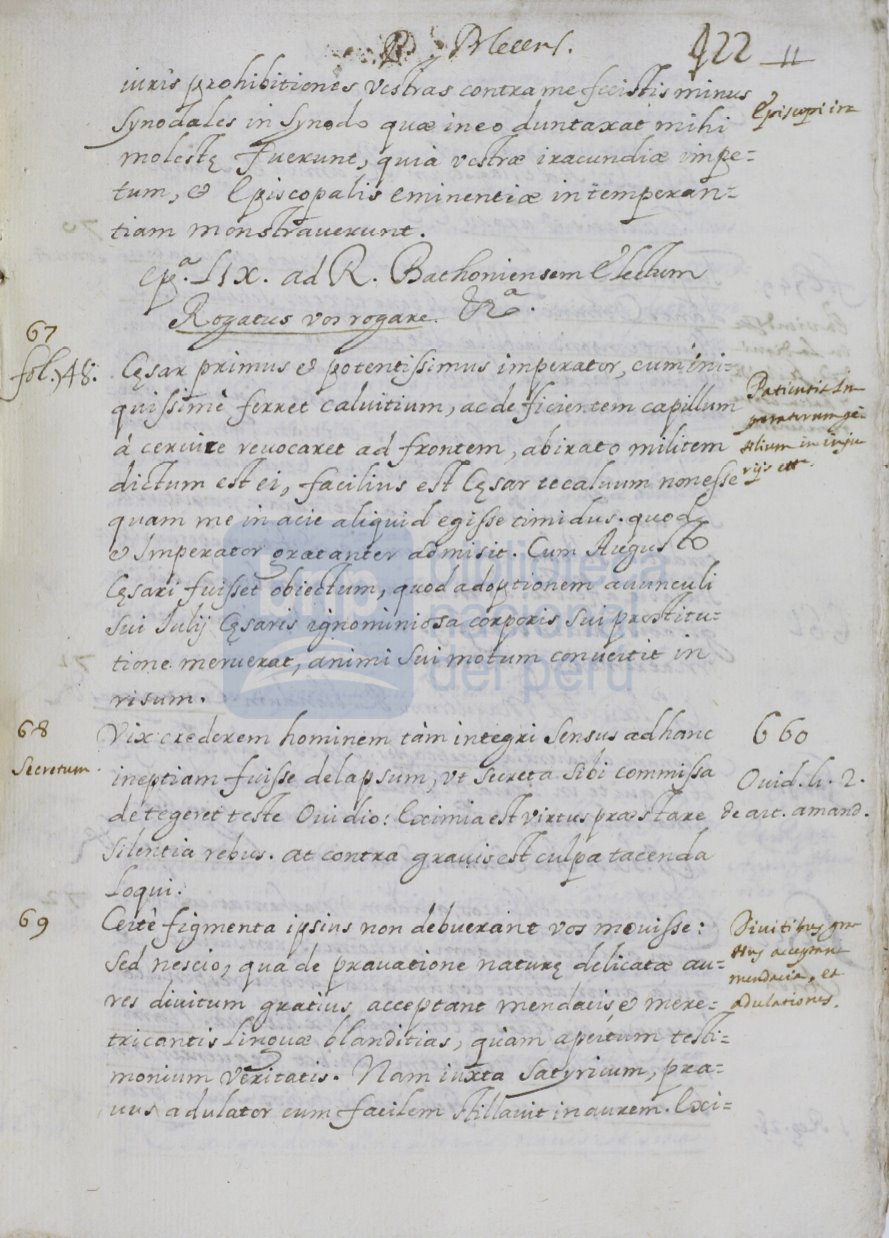 P. Blecens. 422 11
iuris prohibitiones vestras contra me fecistis minus
Synodales in Synodo quæ in eo duntaxat mihi
Episcopi ira
molestę fuerunt, quia vestræ iracundiæ impe=
tum, & Episcopalis eminentiæ intemperan=
tiam monstrauerunt.
Ep.ª LIX. ad R. Bathoniensem Electum
Rogatus vos rogare. &.ª
67
fol. 148. Cęsar primus & potentissimus imperator, cum ini=
quissimè ferret caluitium, ac deficientem capillum
à ceruice reuocaret ad frontem, ab irato militem
dictum est ei, facilius est Cęsar te caluum non esse
quam me in acie aliquid egisse timidus. quod
& Imperator gratanter admisit. Cum Augusto
Cęsari fuisset obiectum, quod adoptionem auunculi
sui Iulij Cęsaris ignominiosa corporis sui prostitu=
tione meruerat, animi sui motum conuertit in
risum.
68 Vix crederem hominem tàm integri sensus ad hanc
660
Secretum. ineptiam fuisse delapsum, vt secreta sibi commissa
Ouid. li. 2.
detegeret teste Ouidio: Eximia est virtus præstare
de art. amand.
silentia rebus. at contra grauis est culpa tacenda
loqui.
69 Certè figmenta ipsius non debuerant vos mouisse:
sed nescio, qua deprauatione naturę delicatæ au=
res diuitum gratius acceptant mendacis & mere=
tricantis linguæ blanditias, quàm apertum testi=
monium veritatis. Nam iuxta Satyricum, pra=
uus adulator cum facilem stillauit in aurem. Exi=
Diuitibus gra
tius acceptan
mendacia, et
adulationes.
bnp biblioteca
nacional
del perú